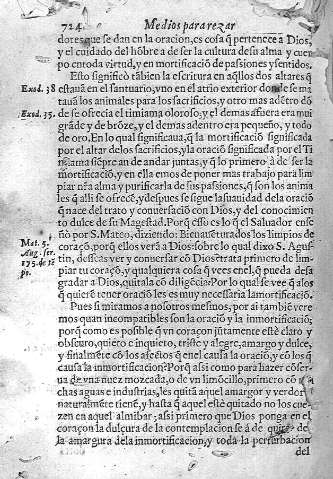 724 Medios para rezar
dores que se dan en la oracion, es cosa q̃ pertenece a Dios,
y el cuidado del hõbre a de ser la cultura de su alma y cuer
po en toda virtud, y en mortificació de pasiones y sentidos.
Esto significò tãbien la escritura en aq̃llos dos altares q̃
Exod. 38 estauã en el santuario, vno en el atrio exterior donde se ma
tauã los animales para los sacrificios, y otro mas adẽtro dõ
Exod. 35. de se ofrecia el timiama oloroso, y el de mas afuera era mui
grãde y de brõze, y el de mas adentro era pequeño, y todo
de oro. En lo qual significaua, q̃ la mortificació significada
por el altar de los sacrificios, y la oració significada por el Ti
miama siẽpre an de andar juntas, y q̃ lo primero à de ser la
mortificació, y en ella emos de poner mas trabajo para lim
piar nr̃a alma y purificarla de sus pasiones, q̃ son los anima
les q̃ alli se ofrecẽ, y despues se sigue la suauidad de la oració
q̃ nace del trato y conuersació con Dios, y del conocimien
to dulce de su Magestad. Porq̃ esso es lo q̃ el Saluador ense
Mat. 5. ñò por S. Mateo, diziendo: Bienauẽturados los limpios de
Aug. ser. coraçõ, porq̃ ellos verã a Dios: sobre lo qual dixo S. Agus-
175. de tẽ tin, desseas ver y conuersar cõ Dios, trata primero de lim-
pr. piar tu coraçõ, y qualquiera cosa q̃ vees en el, q̃ pueda desa
gradar a Dios, quitala cõ diligẽcia: Por lo qual se vee q̃ a los
q̃ quierẽ tener oració les es muy necessaria la mortificació.
Pues si miramos a nosotros mesmos, por ai tambiẽ vere
mos quan incompatibles son la oració y la inmortificació;
porq̃ como es posible q̃ vn coraçon jũtamente estè claro y
obscuro, quieto e inquieto, triste y alegre, amargo y dulce,
y finalmẽte cõ los afectos q̃ en el causa la oració, y cõ los q̃
causa la inmortificacion? Porq̃ assi como para hazer cõser-
ua de vna nuez mozcada, o de vn limoncillo, primero cõ
chas aguas e industrias, les quitã aquel amargor y verdor
naturalmẽte tiene, y hasta q̃ aquel estè quitado no los cue-
zen en aquel almibar: assi primero que Dios ponga en el
coraçon la dulçura de la contemplacion se à de quitar de
la amargura de la inmortificacion, y toda la perturbacion
del